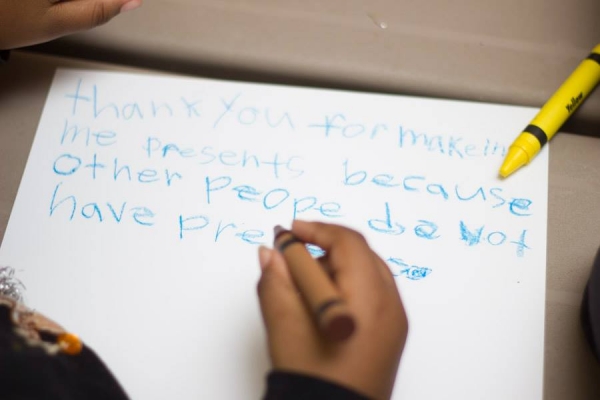 thank you for makein
me presents because
other peope do not
have pre
Yellow